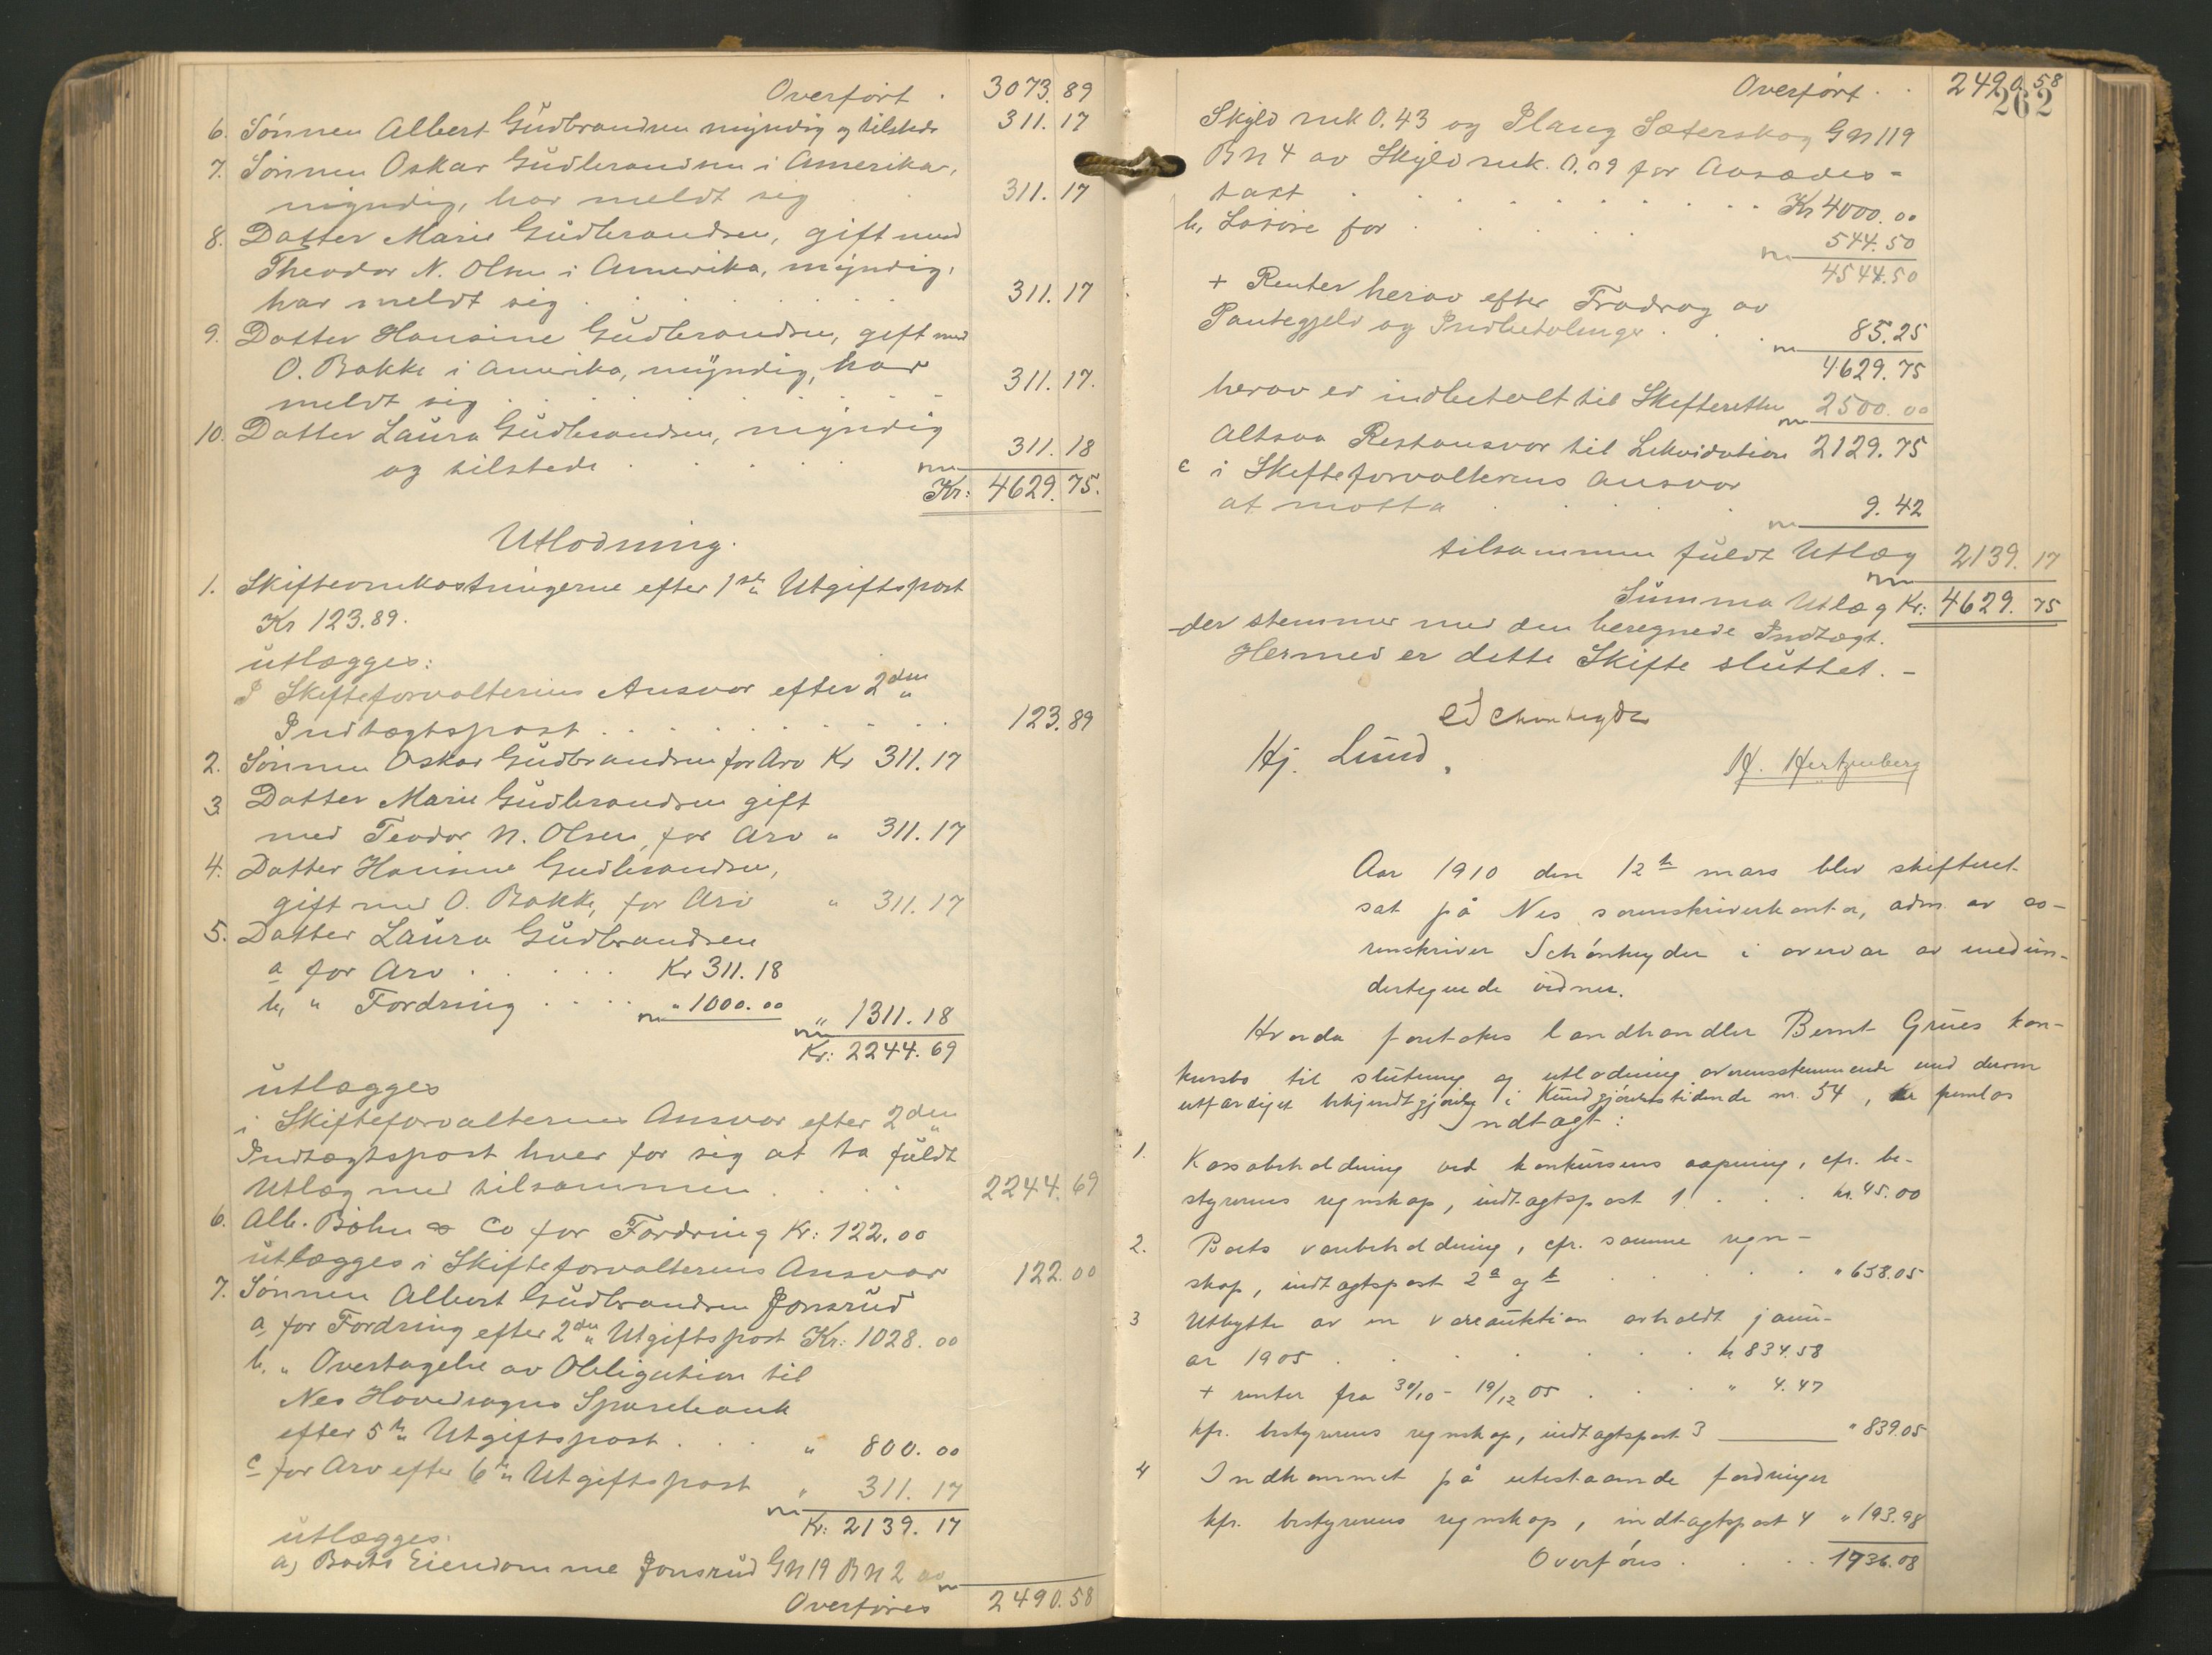 Overført . 3073.89
6. Sønnen Albert Gudbrandsen myndig og tilstede 311.17
7. Sønnen Oskar Gudbrandsen i Amerika,
myndig, har meldt sig . . 311.17
8. Datter Marie Gudbrandsen, gift med
Theodor N. Olsen i Amerika, myndig,
har meldt sig . . . . . . . 311.17
9. Datter Hansine Gudbrandsen, gift med
O. Bakke i Amerika, myndig, har
meldt sig . . . . . . . . 311.17.
10. Datter Laura Gudbrandsen, myndig
og tilstede . . . . . 311.18
Kr: 4629.75.
Utlodning.
1. Skifteomkostningerne efter 1ste Utgiftspost
Kr 123.89.
utlægges:
I Skifteforvalterens Ansvar efter 2den
Indtægtspost . . . . . . . 123.89
2. Sønnen Oskar Gudbrandsen for Arv Kr 311.17
3 Datter Marie Gudbrandsen gift
med Teodor N. Olsen, for Arv " 311.17
4. Datter Hansine Gudbrandsen,
gift med O. Bakke, for Arv " 311.17
5. Datter Laura Gudbrandsen
a for Arv . . . . . Kr 311.18
b, " Fordring . . . . " 1000.00
" 1311.18
Kr: 2244.69
utlægges
i Skifteforvalterens Ansvar efter 2den
Indtægtspost hver for sig at ta fuldt
Utlæg med tilsammen . . . . 2244.69
6. Alb. Bøhn & Co for Fordring Kr: 122.00
utlægges i Skifteforvalterens Ansvar 122.00
7. Sønnen Albert Gudbrandsen Jonsrud
a, for Fordring efter 2den Utgiftspost Kr: 1028.00
b, " Overtagelse av Obligation til
Nes Hovedsogns Sparebank
efter 5te Utgiftspost . . . " 800.00
c for Arv efter 6te Utgiftspost " 311.17
Kr: 2139.17
utlægges:
a) Boets Eiendomme Jonsrud Gn 19 Bn 2 av
Overføres 2490.58
262
Overført . . 2490.58
Skyld mk 0.43 og Plang Sæterskog Gn 119
Bn 4 av Skyld mk. 0.09 for Aasædes-
taxt . . . . . . . . . . Kr 4000.00
b, Løsøre for . . . . . 544.50
4544.50
+ Renter herav efter Fradrag av
Pantegjeld og Indbetalinger . . . 85.25
4629.75
herav er indbetalt til Skifteretten 2500.00
Altsaa Restansvar til Likvidation 2129.75
c i Skifteforvalterens Ansvar
at motta . . . . . 9.42
tilsammen fuldt Utlæg 2139.17
Summa Utlæg Kr: 4629.75
der stemmer med den beregnede Indtægt.
Hermed er dette Skifte sluttet. -
E Schønheyder
Hj. Lund. H. Hertzenberg
Aar 1910 den 12te mars blev skifteret
sat på Nes sorenskriverkontor, adm. av so-
renskriver Schönheyder i overvær av medun-
dertegnede vidner.
Hvorda foretokes landhandler Bernt Grues kon-
kursbo til slutning og utlodning overensstemmende med derom
utfærdiget bekjendtgjørelse i Kundgjørelsestidende nr. 54,
Indtægt:
1. Kassabeholdning ved konkursens aapning, cfr. be-
styrerens regnskap, indtægtspost 1. . . . kr. 45.00
2. Boets varebeholdning, cfr. samme regn-
skap, indtægtspost 2 a og b . . . . " 658.05
3 Utbytte av en vareauktion avholdt janu-
ar 1905 . . . . . . . kr 834.58
+ renter fra 30/10 - 19/12 05 . . . " 4.47
kfr. bestyrerens regnskap, indtægtspost 3 " 839.05
4 Indkommet på utestaaende fordringer
kfr. bestyrerens regnskap, indtægtspost 4 " 193.98
Overføres . . . . 1736.08